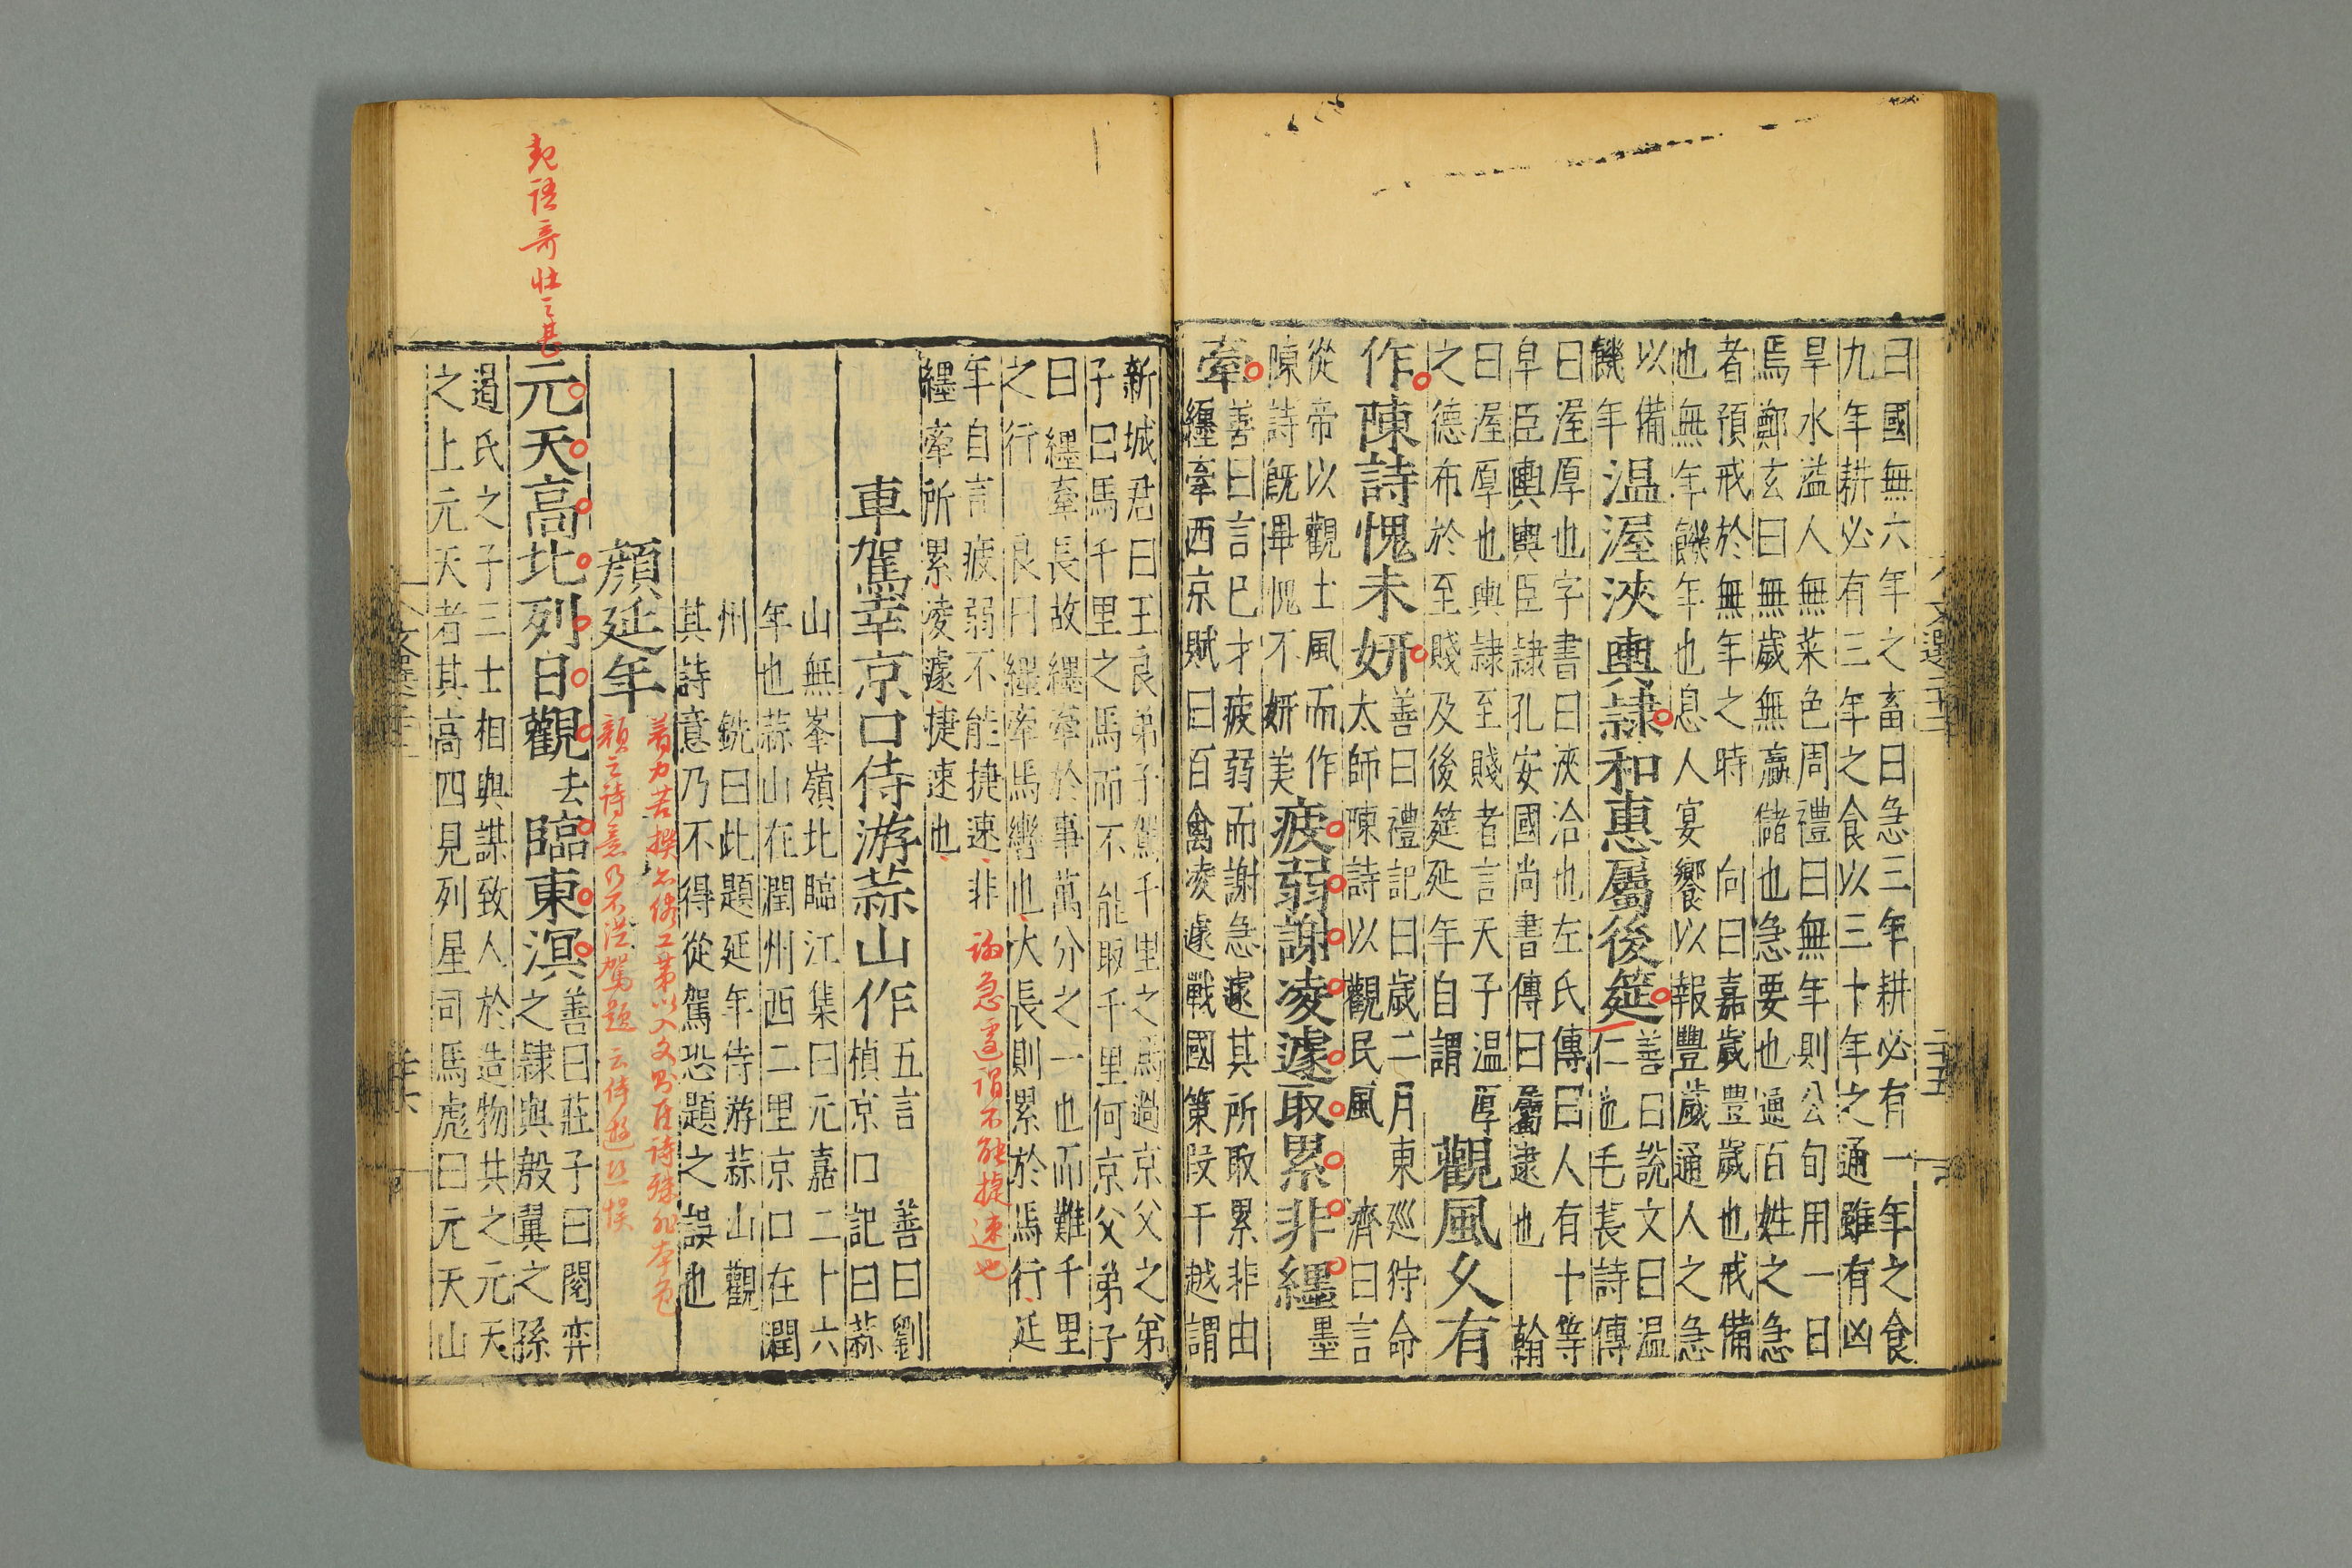 曰國無六年之畜曰急三年耕必有一年之食
九年耕必有三年之食以三十年之通雖有凶
旱水溢人無菜色周禮曰無年則公旬用一日
焉鄭玄曰無歲無贏儲也急要也通百姓之急
者預戒於無年之時 向曰嘉歲豐歲也戒備
也無年饑年也息人宴饗以報豐歲通人之急
以備
饑年
温渥浹輿隷和惠屬後筵
善曰說文曰温
仁也毛萇詩傳
曰渥厚也字書曰浹洽也左氏傳曰人有十等
皁臣輿輿臣隷孔安國尚書傳曰屬逮也 翰
曰渥厚也輿隷至賤者言天子温厚
之德布於至賤及後筵延年自謂
觀風久有
作陳詩愧未妍
善曰禮記曰歲二月東巡狩命
太師陳詩以觀民風 濟曰言
從帝以觀土風而作
陳詩旣畢愧不妍美
疲弱謝凌遽取累非纆
墨
牽
善曰言已才疲弱而謝急遽其所取累非由
纆牽西京賦曰百禽凌遽戰國策段干越謂
新城君曰王良弟子駕千里之馬過京父之弟
子曰馬千里之馬而不能取千里何京父弟子
曰纆牽長故纆牽於事萬分之一也而難千里
之行 良曰纆牽馬轡也大長則累於馬行延
年自言疲弱不能捷速非
纆牽所累凌遽捷速也
論急遽謂不能捷速也
車駕幸京口侍游蒜山作
五言 善曰劉
楨京口記曰蒜
山無峯嶺北臨江集曰元嘉二十六
年也蒜山在潤州西二里京口在潤
州 銑曰此題延年侍游蒜山觀
其詩意乃不得從駕恐題之誤也
顔延年
顔之詩意乃不從駕題云侍遊恐悞
元天高北列日觀
去
臨東溟
善曰莊子曰閼弈
之隷與殷翼之孫
遏氏之子三士相與謀致人於造物共之元天
之上元天者其高四見列星司馬彪曰元天山
起語奇壯之甚